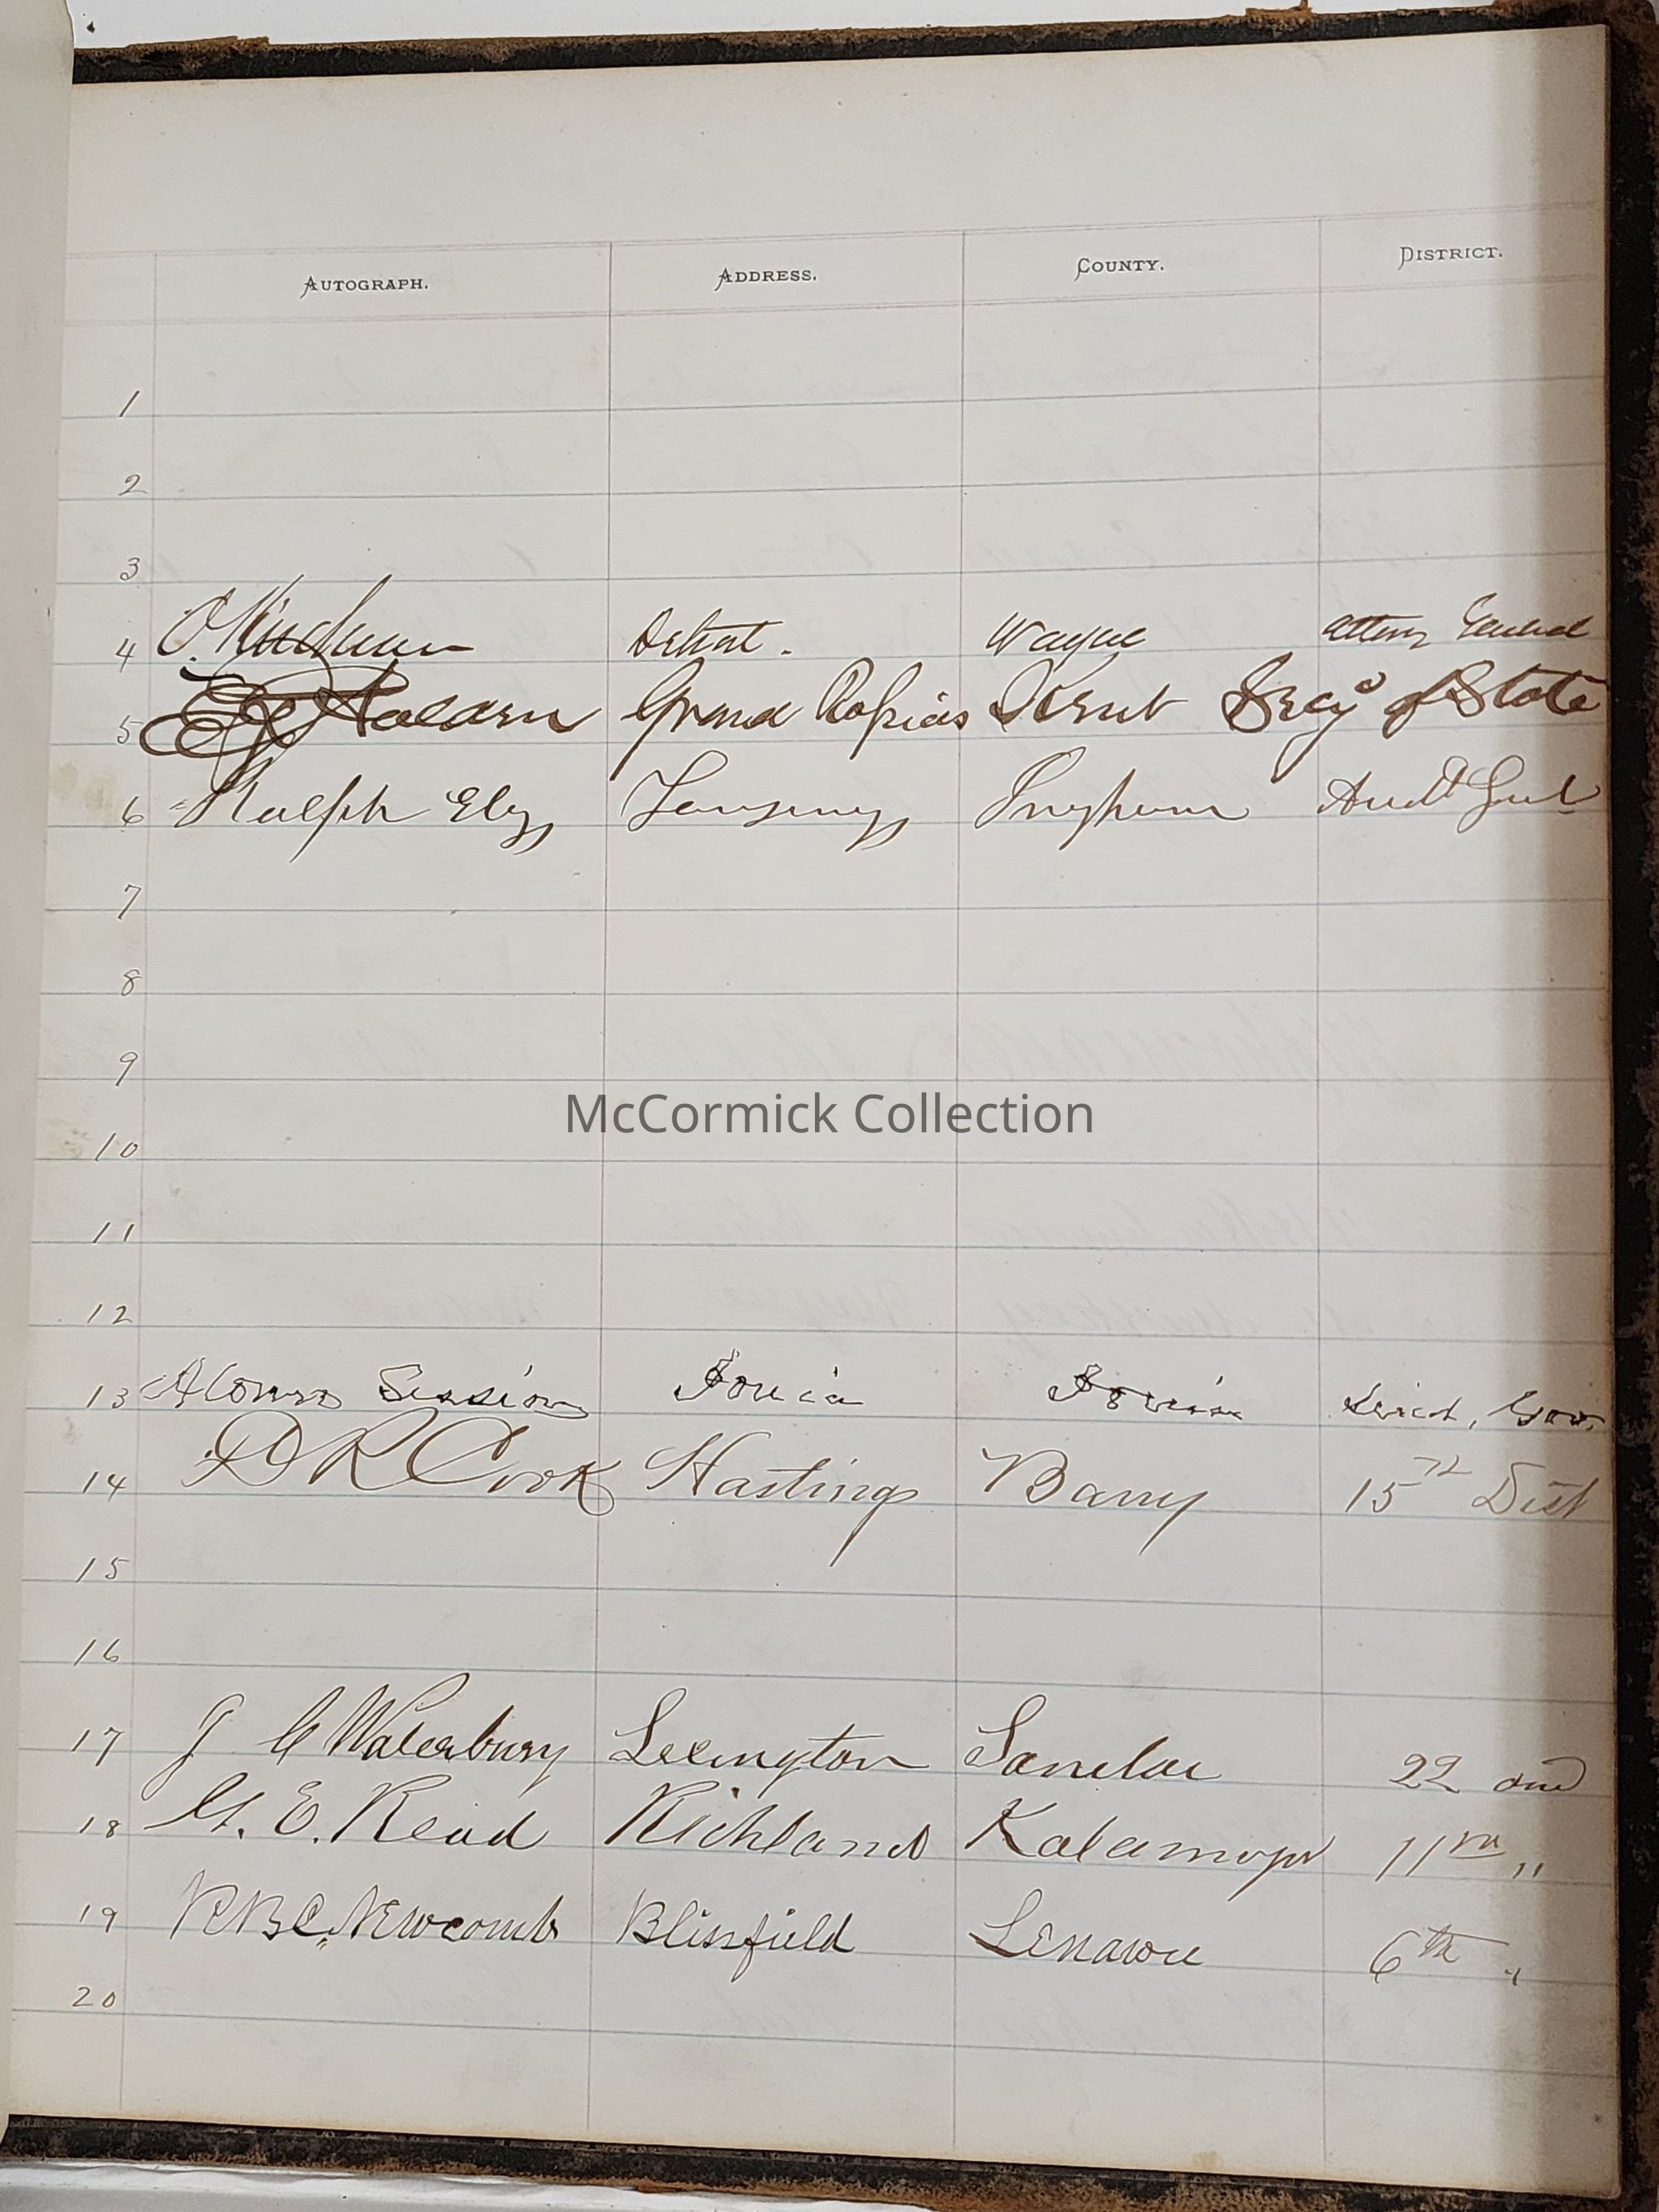 AUTOGRAPH. ADDRESS. COUNTY. DISTRICT.
1
2
3
4 O. Kirchner Detroit. Wayne Attorney General
5 EGD Holden Grand Rapids Kent Secy of State
6 Ralph Ely Lansing Ingham Aud Genl
7
8
9
McCormick Collection
10
11
12
13 Alonzo Sessions Ionia Ionia Lieut. Gov.
14 D R Cook Hastings Barry 15th Dist
15
16
17 J C Waterbury Lexington Sanilac 22 ond
18 G. E. Read Richland Kalamazoo 11th "
19 RBC. Newcomb Blissfield Lenawee 6th "
20